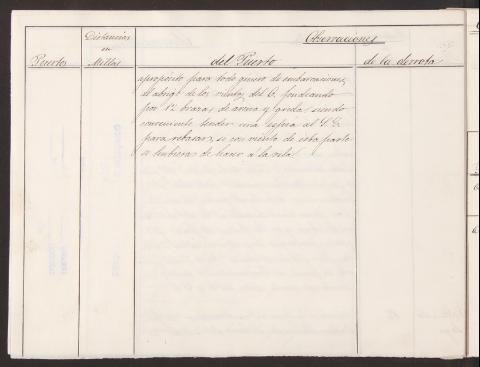 Observaciones
Distancias
en
Puertos Millas del Puerto de la derrota
aproposito para todo genero de embarcaciones,
al abrigo de los vientos del O. fondeando
por 12 brazas de arena y greda, siendo
conveniente tender una espia al
para rebasar, si con viento de esta parte
se hubiera de hacer á la vela